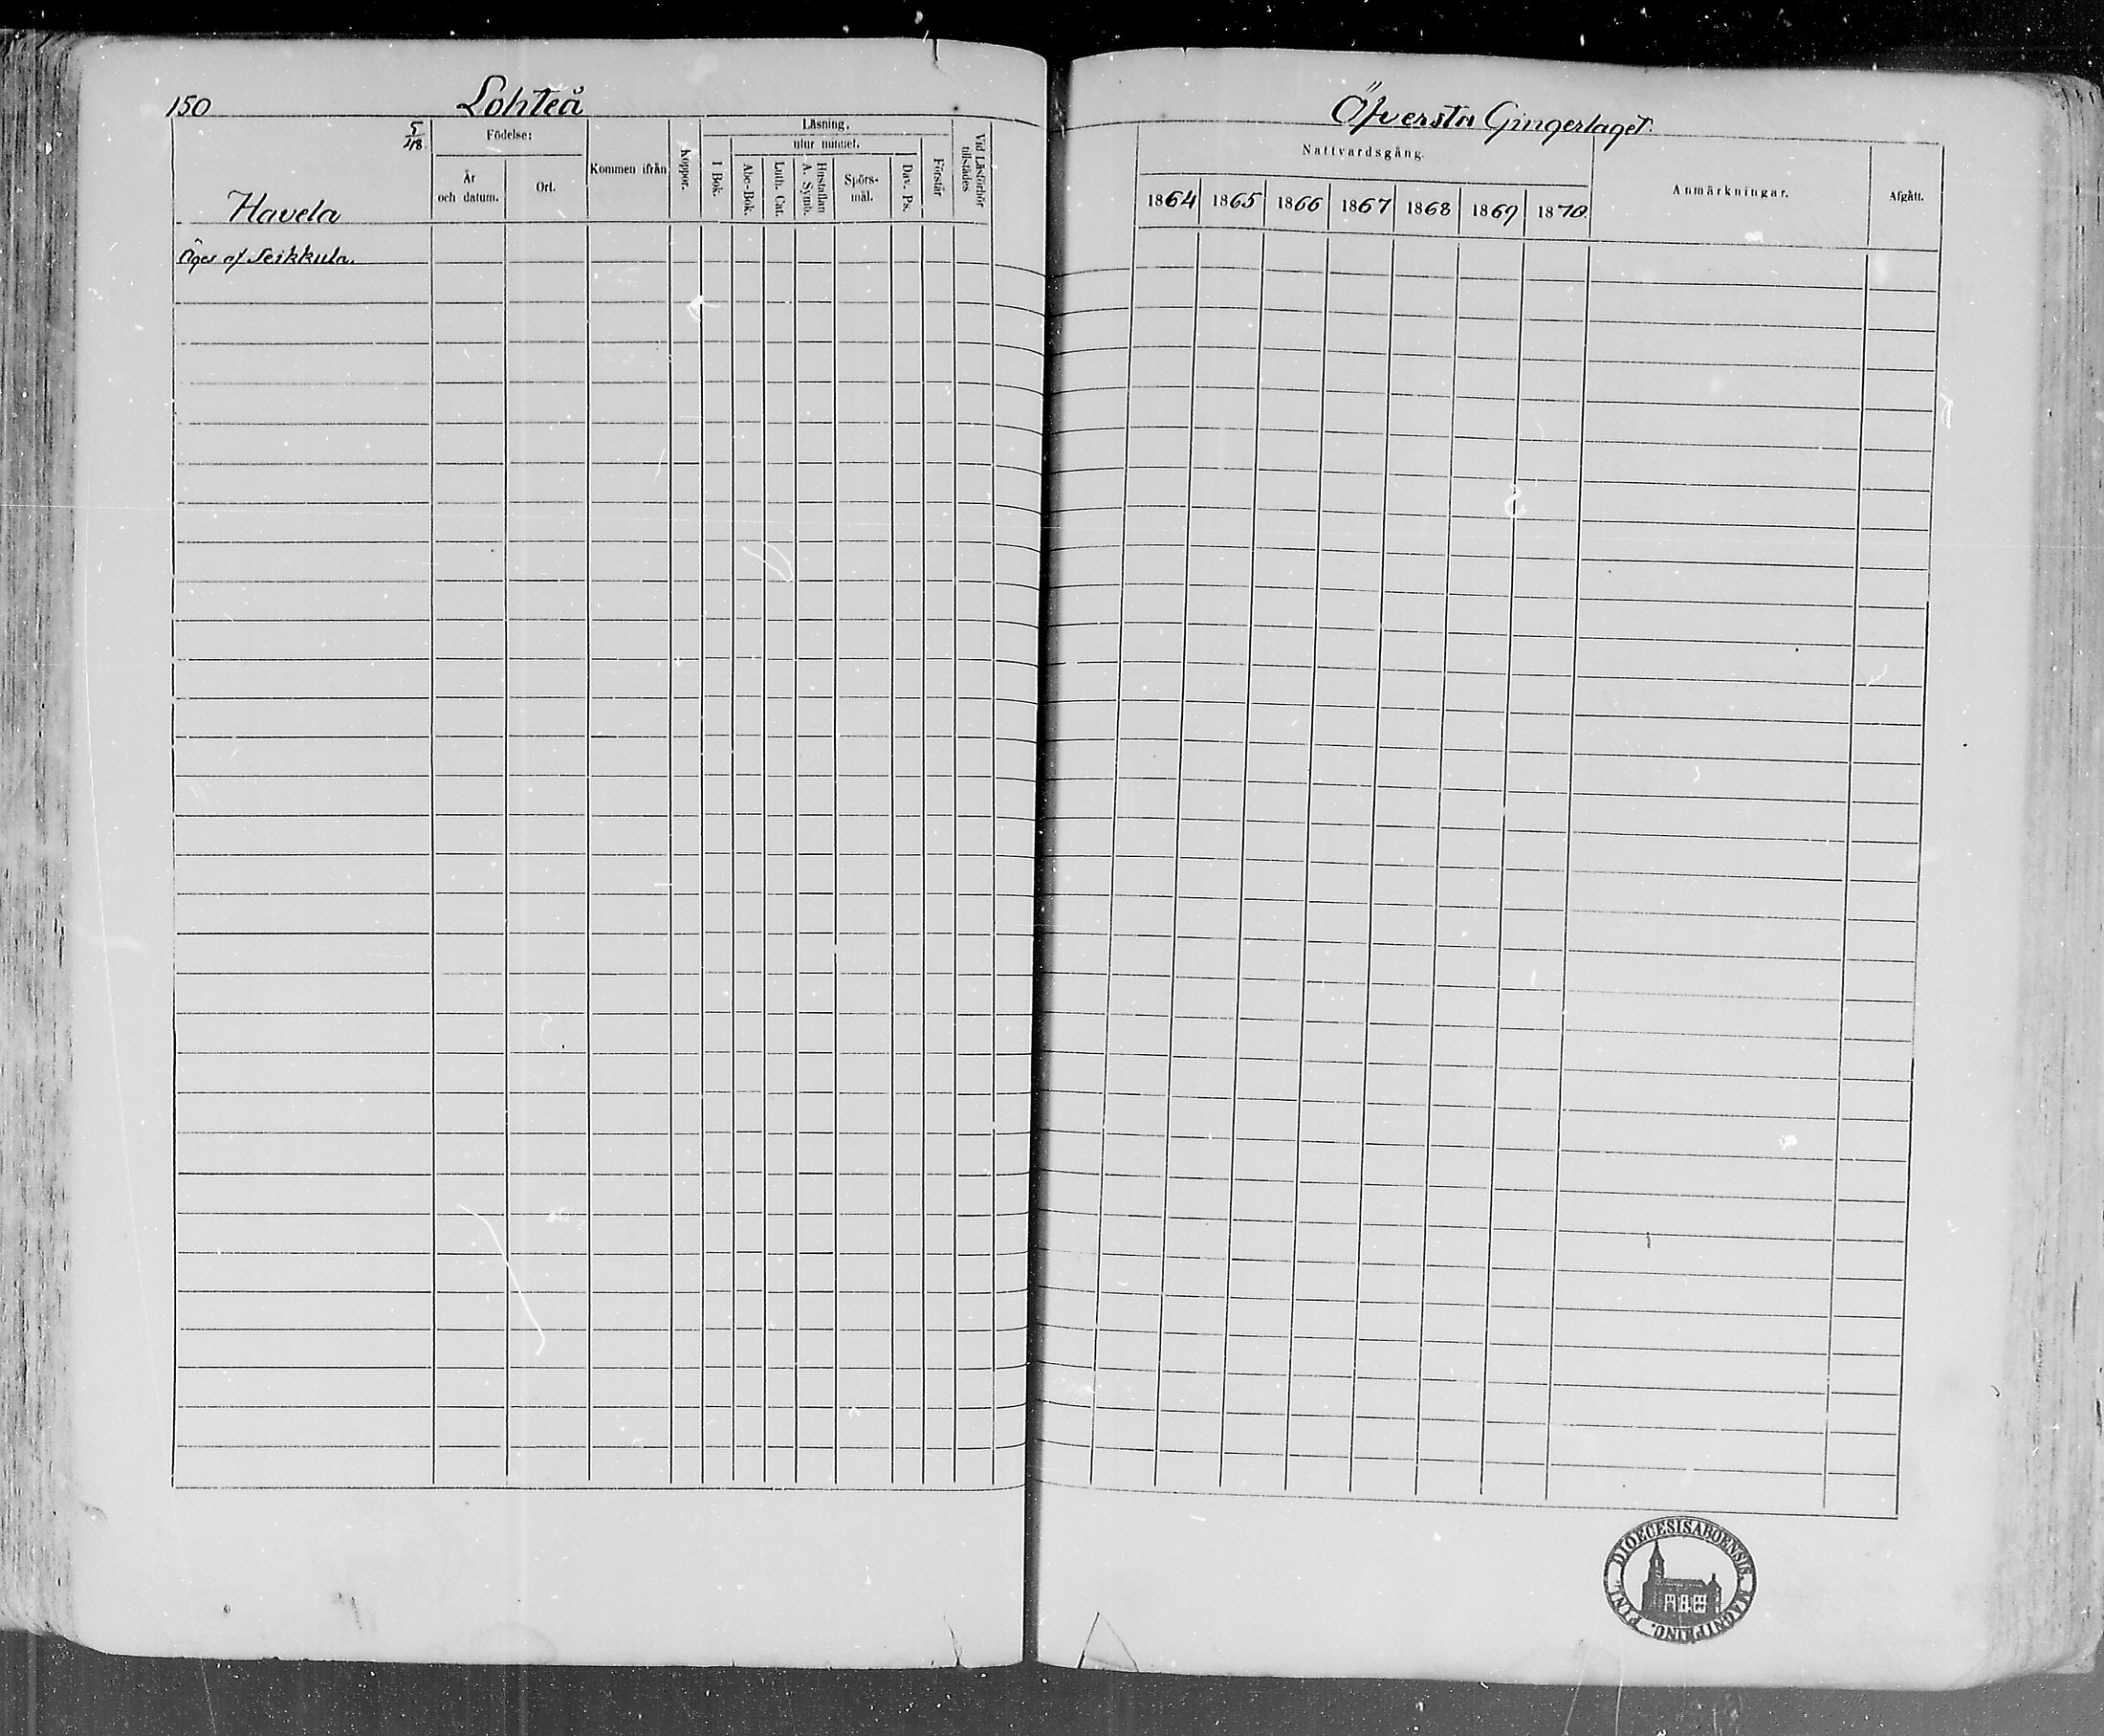 150 Lohteå
5/48
Havela
Födelse:
År och datum.
Ort.
Kommen ifrån
Koppor.
Läsning.
I Bok.
utur minnet.
Abc-Bok.
Luth. Cat.
Hustaflan A. Symb.
Spörs-mål.
Dav. Ps.
Förstår
Vid Läsförhör tillstädes
Äges af Seikkula.
Öfversta Gingerlaget.
Nattvardsgång.
1864 1865 1866 1867 1868 1869 1870
Anmärkningar.
Afgått.
DIOECESIS ABOENSIS. MAGNI PRINC. FINL.